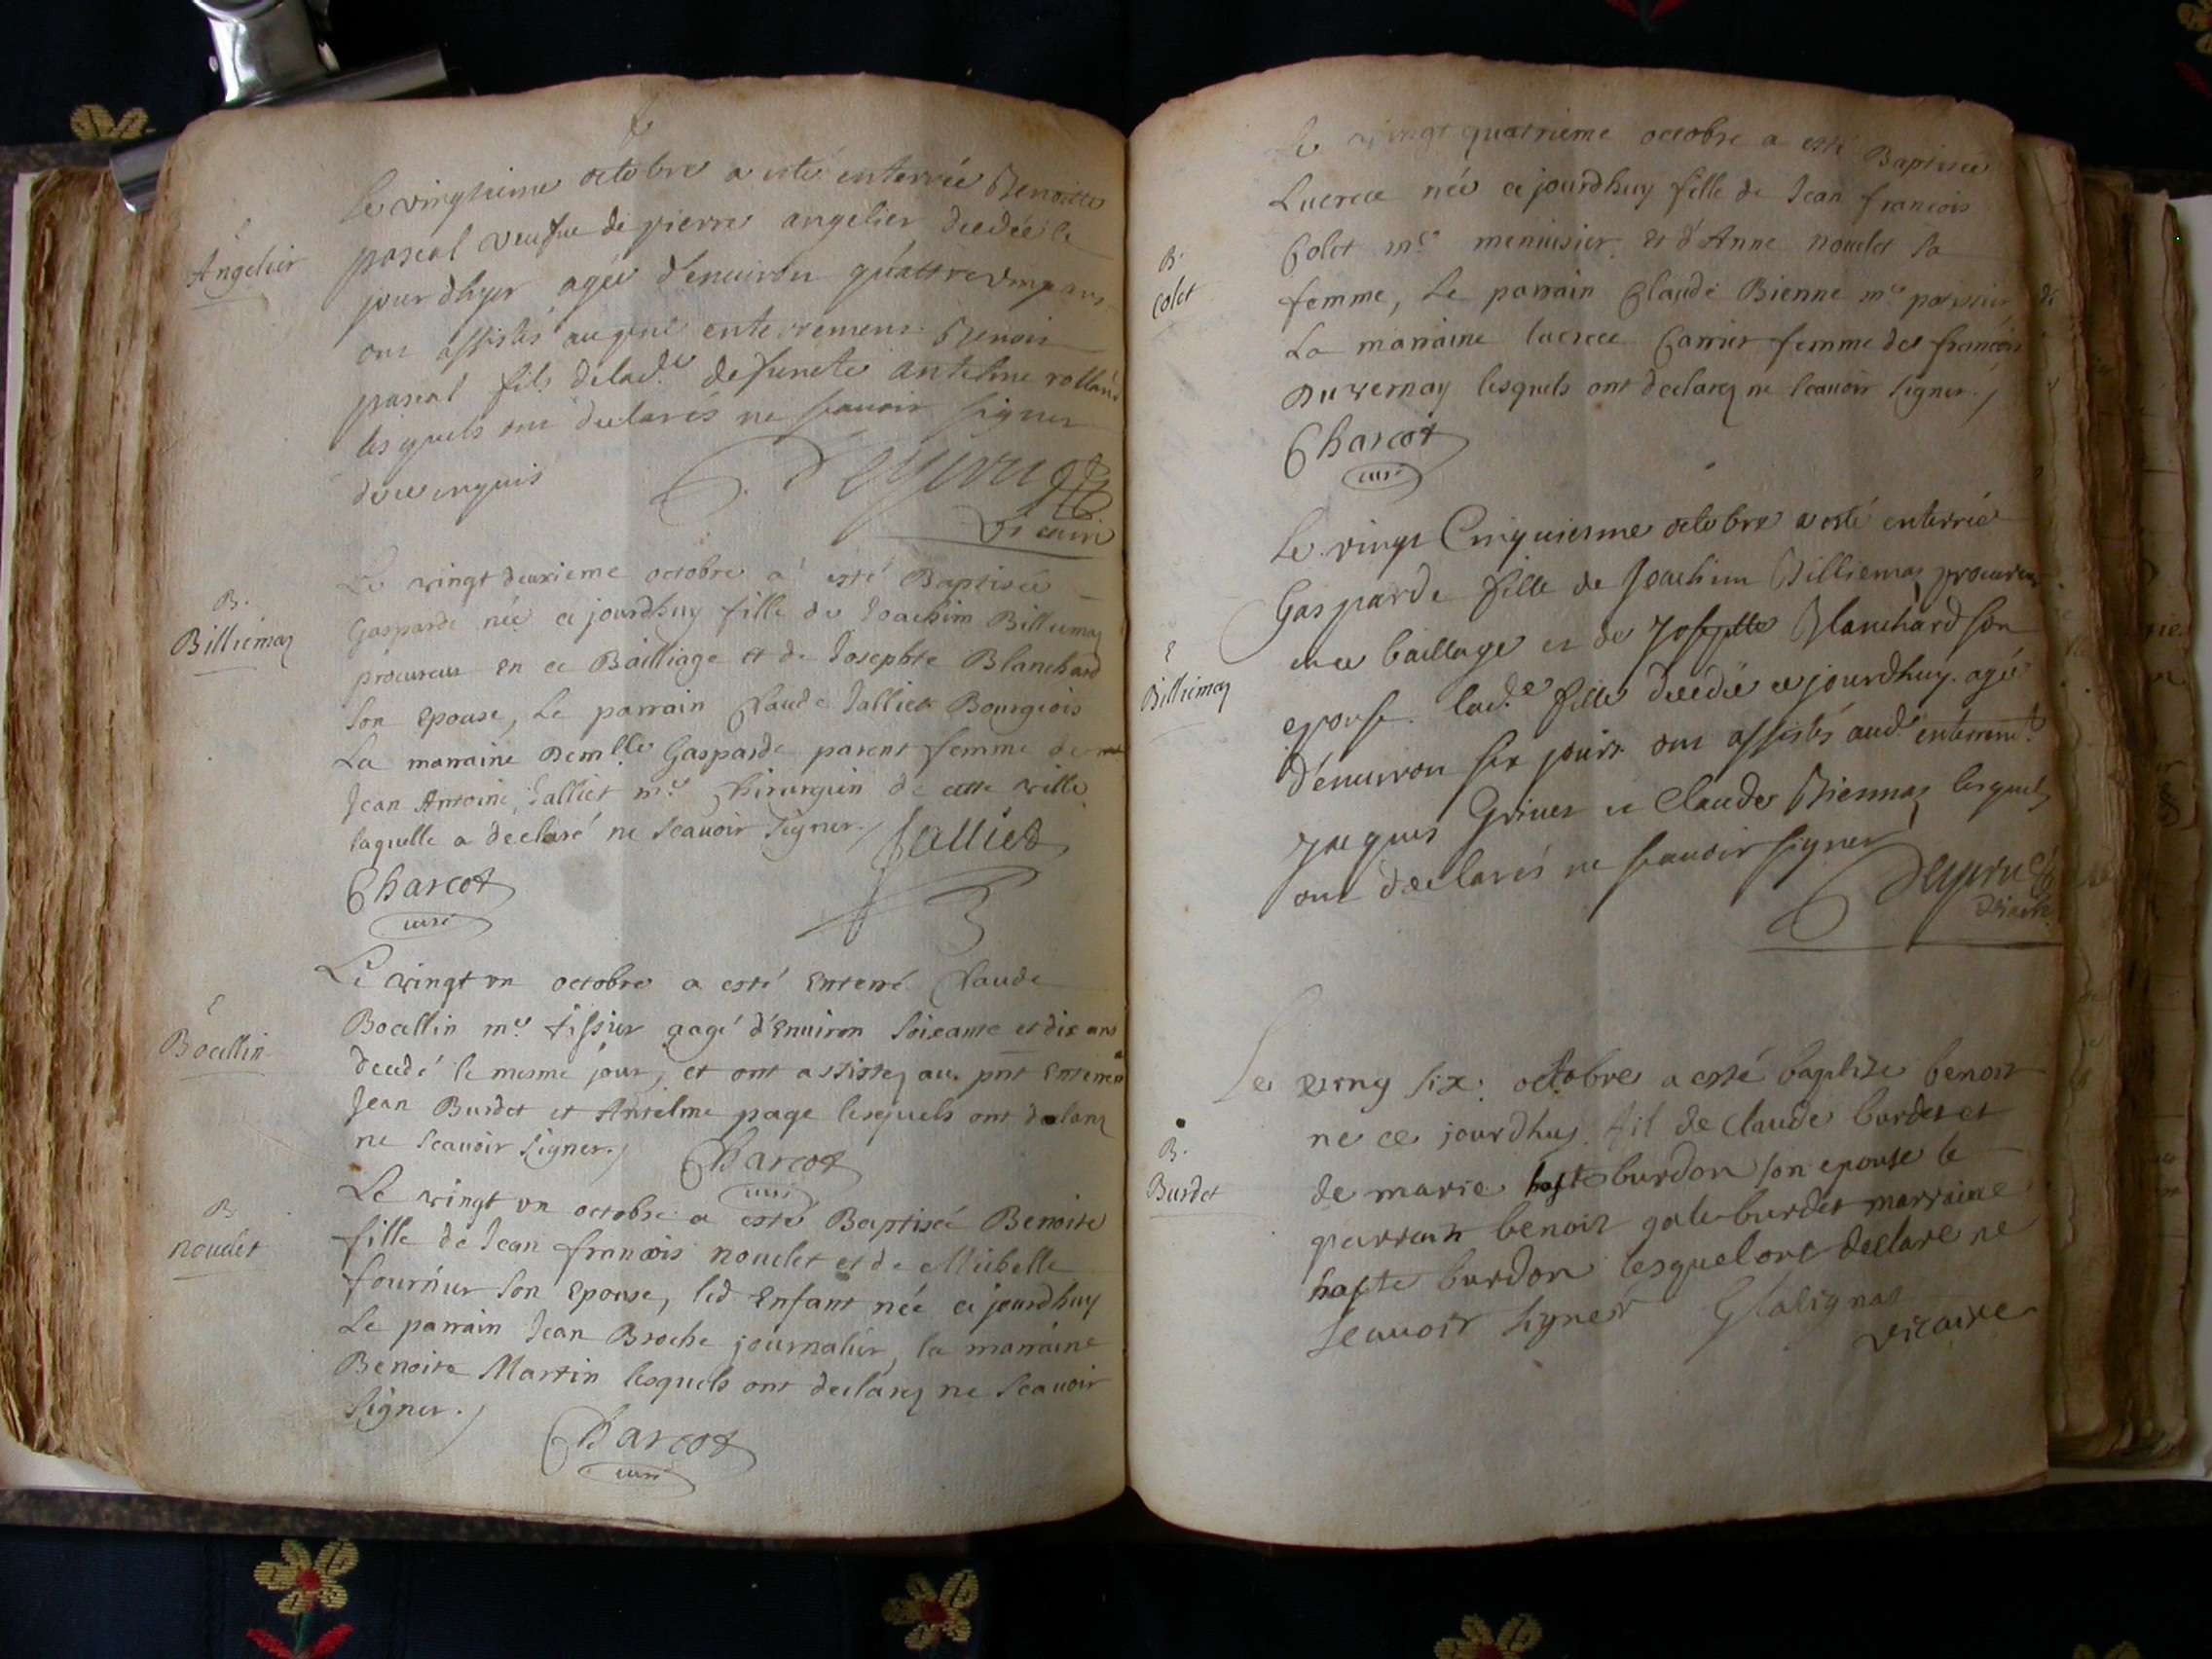 E
Angelier
Le vingtieme octobre a esté enterrée Benoitte
pascal veufue de pierre angelier decedée le
jour d'hyer agée d'enuiron quattre vingt ans
ont assistés au pnt enterrement Benoit
pascal fils de lad.e defuncte antelme rolland
lesquels ont declarés ne scauoir signer
de ce enquis
vicaire
B.
Billiemaz
Le vingt deuxieme octobre a esté Baptisée
Gasparde née ce jourdhuy fille de Joachim Billiemaz
procureur en ce Bailliage et de Josephte Blanchard
son Epouse, Le parrain Claude Jalliet Bourgeois
La marraine Demlle Gasparde parent femme de
Jean Antoine Jalliet me. chirurgien de cette ville
laquelle a declaré ne scauoir signer./ Jalliet
Charcot
curé
E
Bocallin
Le vingt un octobre a esté Enterré Claude
Bocallin me. tissier aagé d'Enuiron soixante et dix ans
decedé le mesme jour, et ont assistez au pnt Enterremt
Jean Burdet et Antelme page lesquels ont declarez
ne scauoir signer./ Charcot
curé
B.
nouclet
Le vingt un octobre a esté Baptisée Benoite
fille de Jean francois nouclet et de Mibelle
fournier son Epouse, led Enfant née ce jourdhuy
Le parrain Jean Broche journalier, la marraine
Benoite Martin lesquels ont declarez ne scauoir
signer./
Charcot
curé
Le vingt quatrieme octobre a esté Baptisée
B.
Colet
Lucrece née ce jourdhuy fille de Jean francois
Colet me. menuisier et d'Anne nouclet sa
femme, Le parrain Claude Bienne me
La marraine lucrece Carrier femme de francois
Duvernay lesquels ont declarez ne scauoir signer./
Charcot
curé
E
Billiemaz
Le vingt Cinquiesme octobre a esté enterrée
Gasparde fille de Joachim Billiemaz procureur
en ce baillage et de Josephte Blanchard son
epouse. lad.e fille decedée ce jourdhuy. agée
d'enuiron six jours ont assistés aud. enterremt.
Jacques Griuet et Claude Biennaz lesquels
ont declarés ne scauoir signer
vicaire
B.
Burdet
Le vingt six: octobre a esté baptise benoit
ne ce jourdhuy fil de claude burdet et
de marie burdon son epouse le
parrain benoit burdet marraine
burdon lesquel ont declare ne
scauoir signer
vicaire